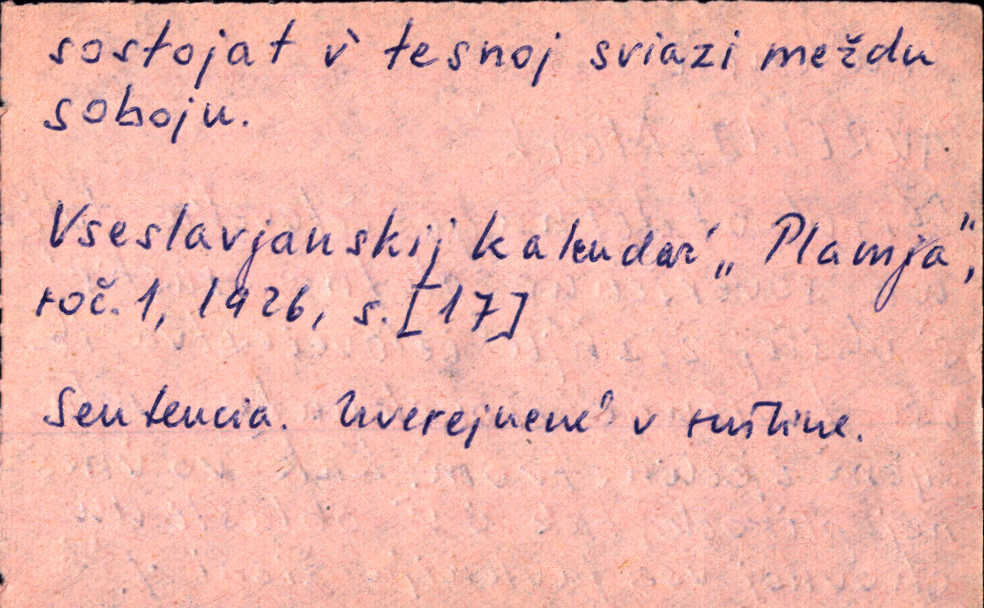 sostojat v tesnoj sviazi meždu
soboju.
Vseslavjanskij kalendař „Plamja“,
roč. 1, 1926, s. [17]
Sentencia. Uverejnené v ruštine.